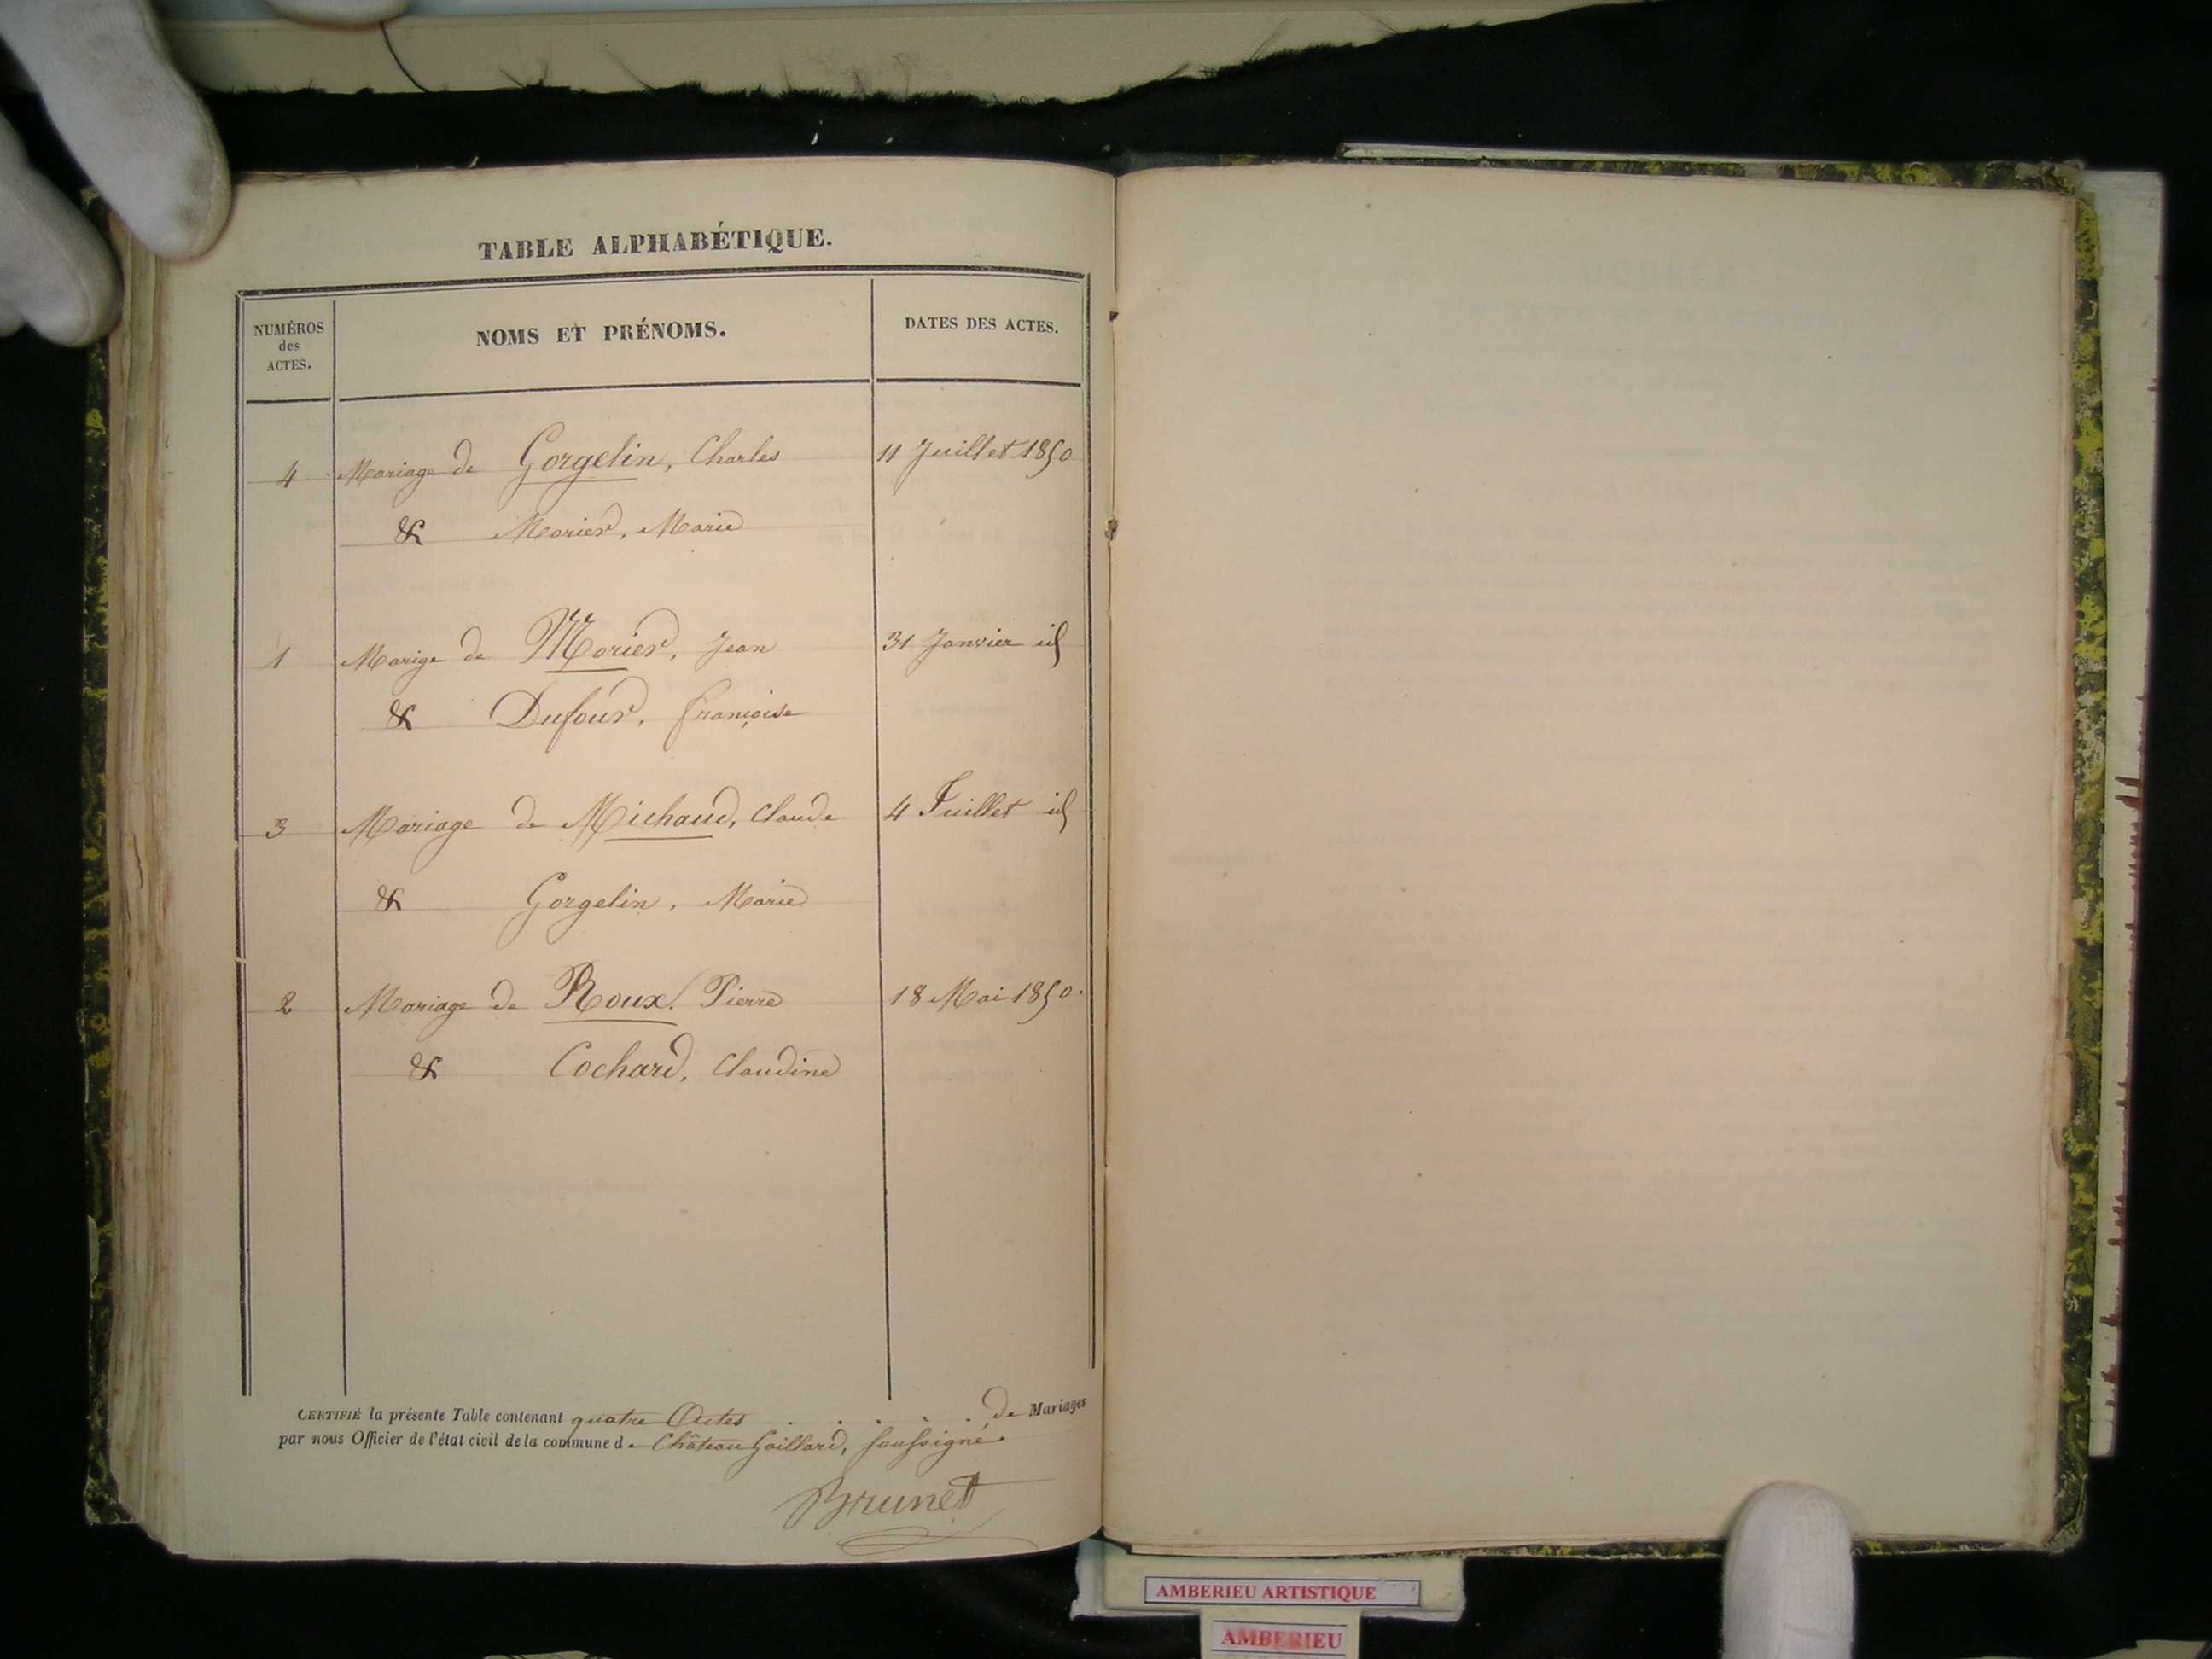 TABLE ALPHABÉTIQUE.
NUMÉROS des ACTES.
NOMS ET PRÉNOMS.
DATES DES ACTES.
4 Mariage de Gorgelin, Charles 11 Juillet 1850
& Morier, Marie
1 Marige de Morier, Jean 31 Janvier id
& Dufour, françoise
3 Mariage de Michaud, Claude 4 Juillet id
& Gorgelin, Marie
2 Mariage de Roux, Pierre 18 Mai 1850.
& Cochard, Claudine
CERTIFIÉ la présente Table contenant quatre Actes . . . . . de Mariages
par nous Officier de l'état civil de la commune de Château Gaillard, soussigné.
Brunet
AMBERIEU ARTISTIQUE
AMBERIEU